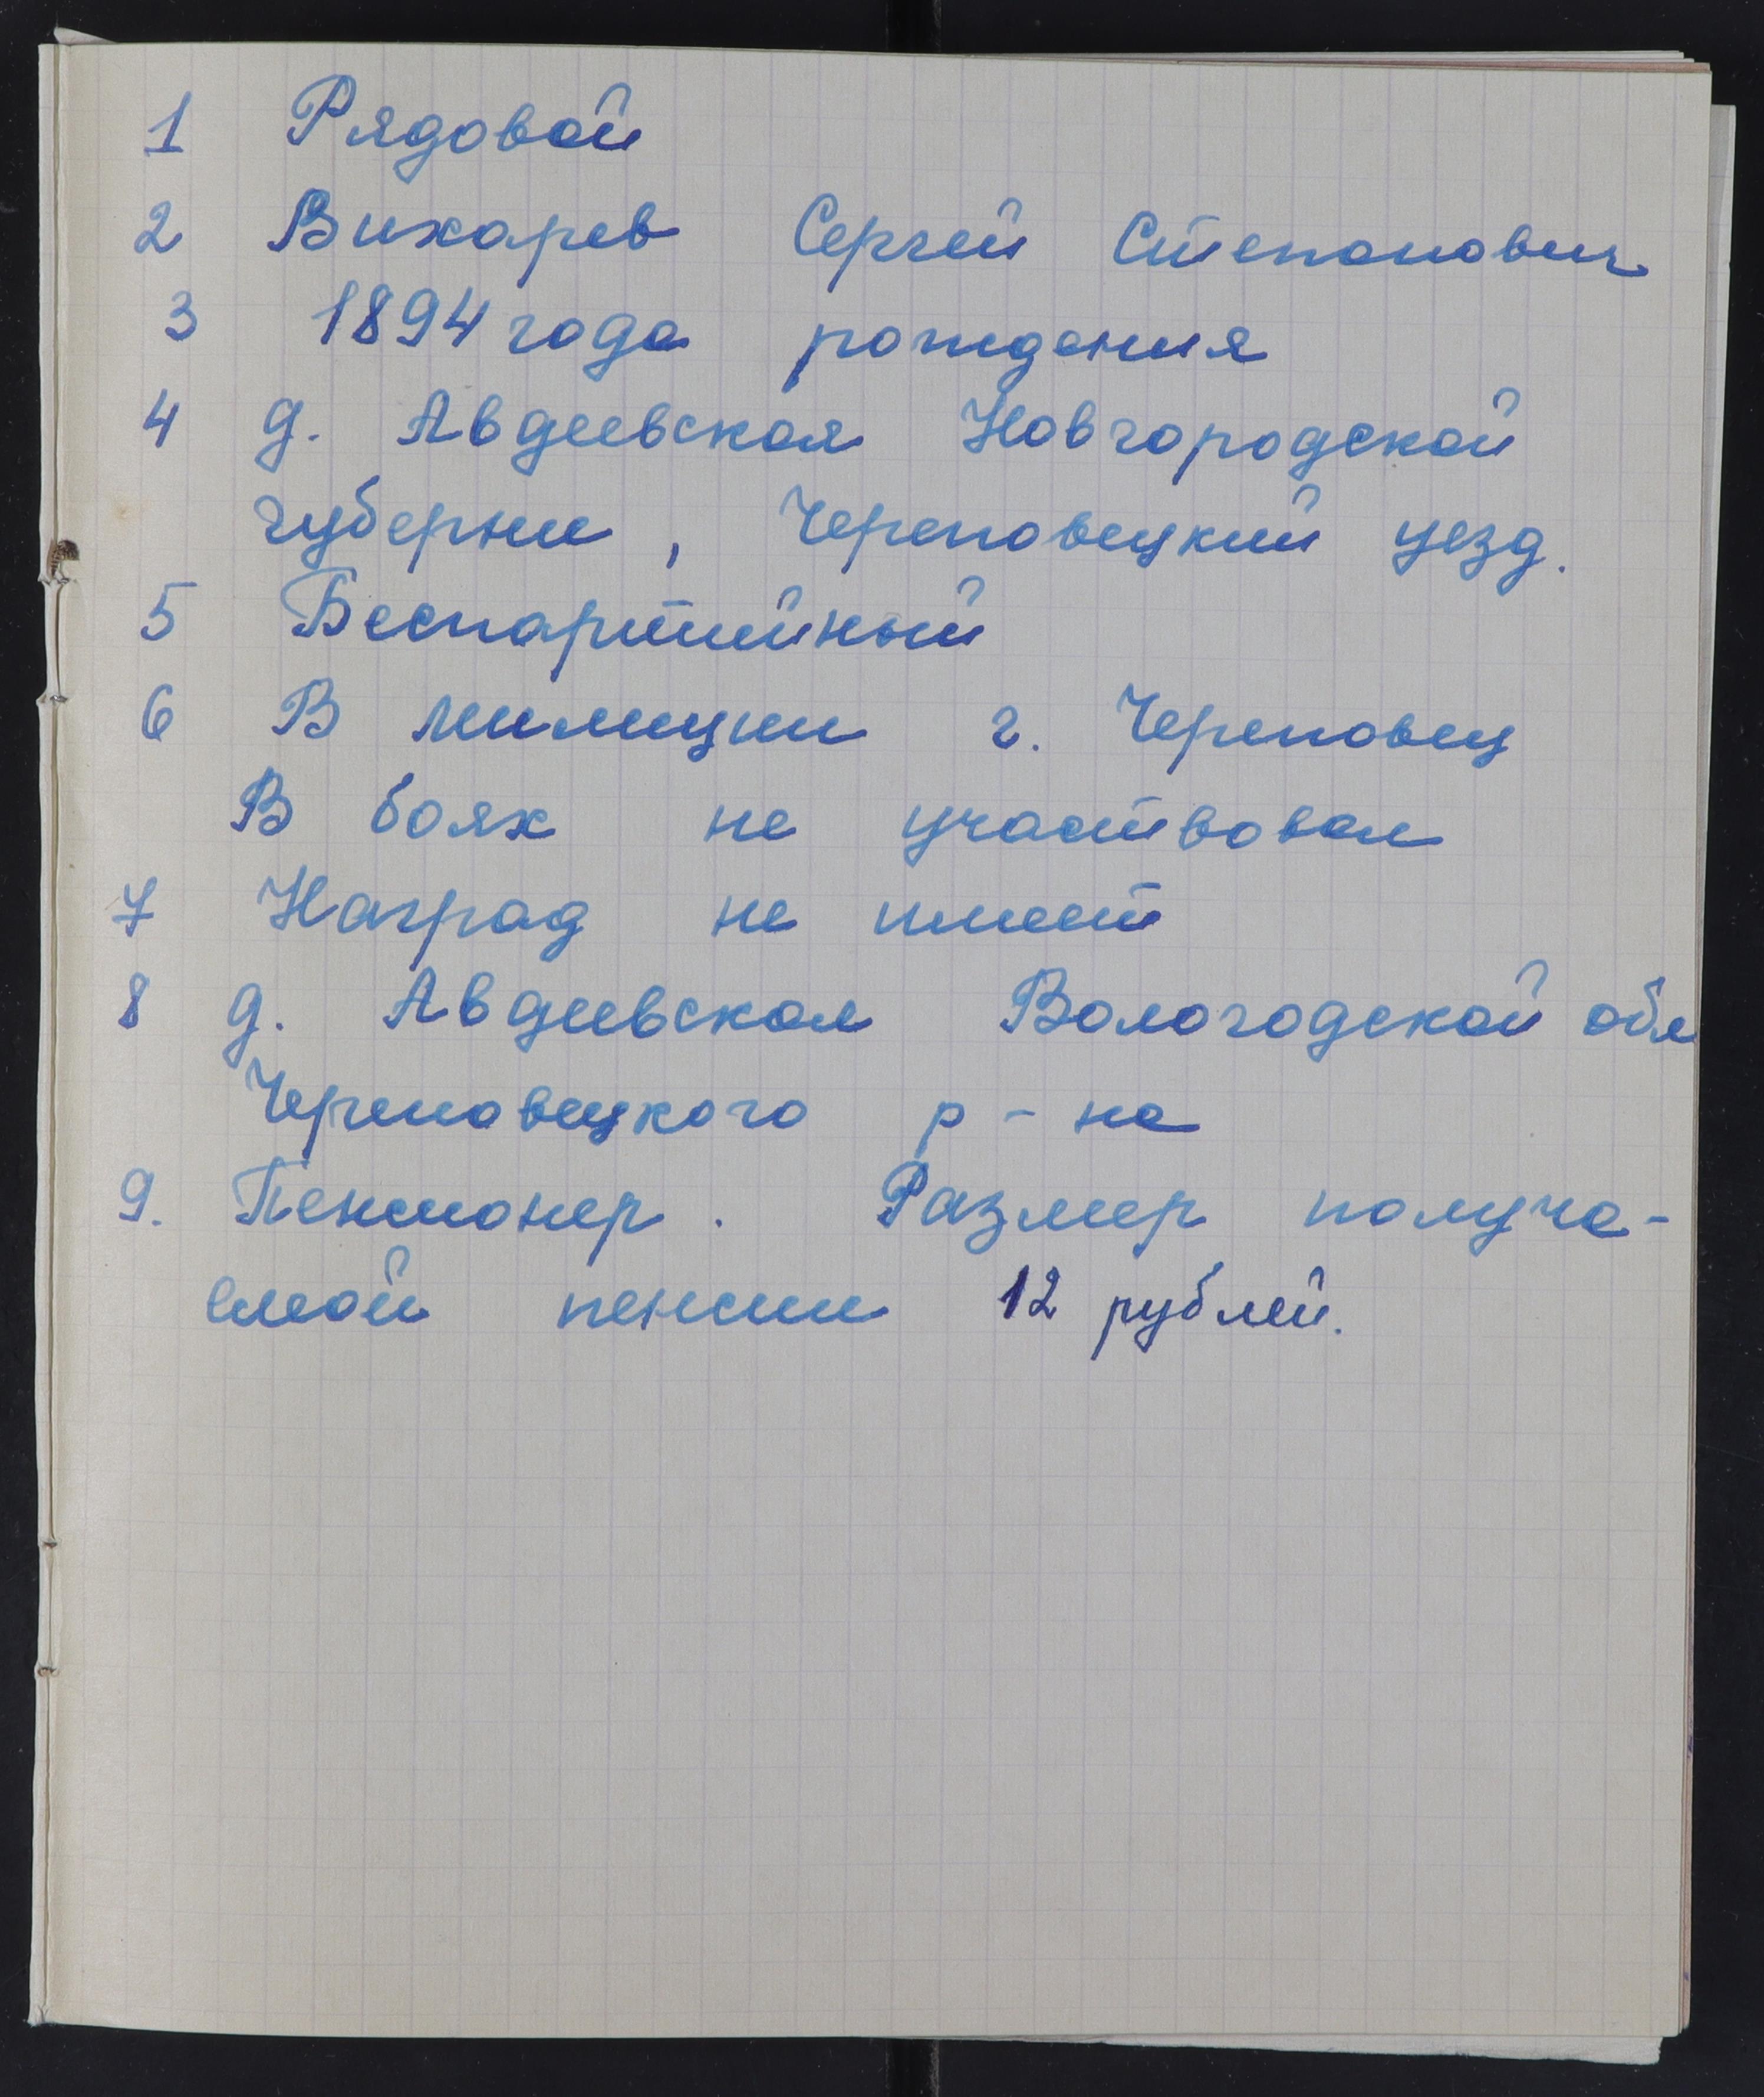 1 Рядовой
2 Вихарев Сергей Степанович
3 1894 года рождения
4 д. Авдеевская Новгородской
губернии, Череповецкий уезд.
5 Беспартийный
6 В милиции г. Череповец
В боях не участвовал
7 Наград не имеет
8 д. Авдеевская Вологодской обл
Череповецкого р-на
9. Пенсионер. Размер получа-
емой пенсии 12 рублей.